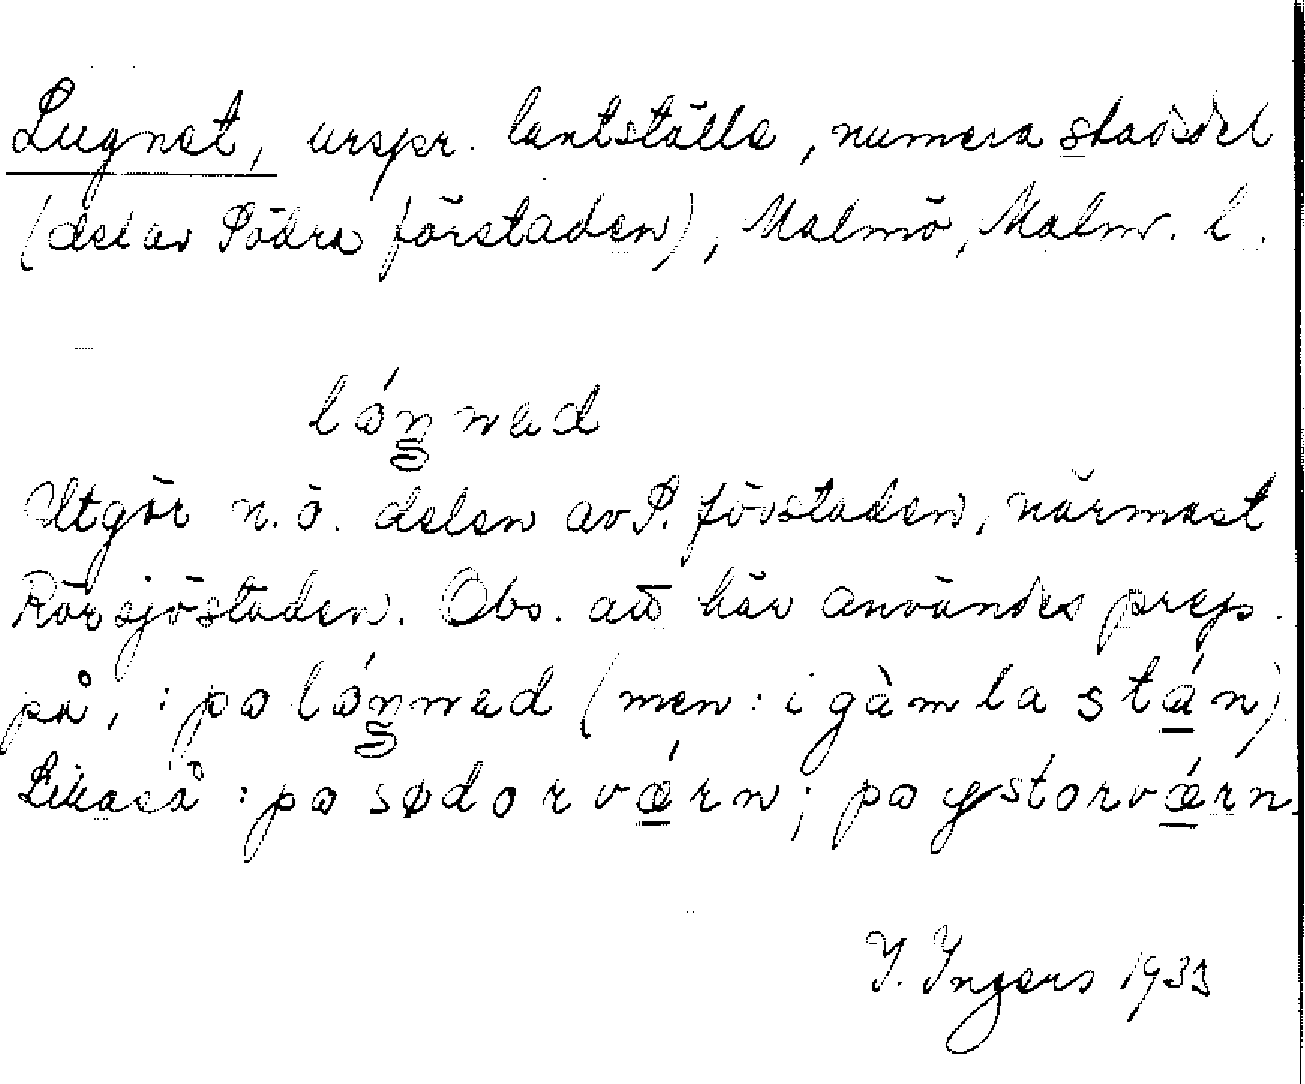 Lugnet, urspr. lantställe, numera stadsdel
(del av Södra förstaden), Malmö, Malm. l.
lóŋnad
Utgör n.ö. delen av S. förstaden, närmast
Rörsjöstaden. Obs. att här användes prep.
på, : po lóŋnad (men : i gàmla stán)
Likaså : po sødorvǽrn; po ystorvǽrn.
I. Ingers 1933